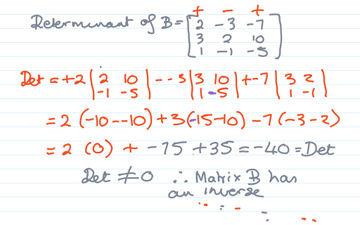 + - +
Determinant of B = [2 -3 -7
3 2 10
1 -1 -5]
Det = +2 |2 10 -1 -5| - -3 |3 10 1 -5| + -7 |3 2 1 -1|
= 2 (-10 - -10) + 3(-15-10) -7 (-3 -2)
= 2 (0) + -75 +35 = -40 = Det
Det ≠ 0 ∴ Matrix B has
an inverse